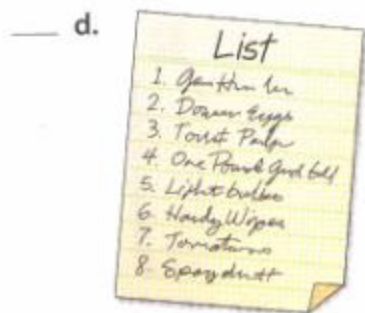 d.
List
1.
2. Dozen Eggs
3. Toilet Paper
4. One Pound
5. Light bulbs
6. Handy Wipes
7. Tomatoes
8.